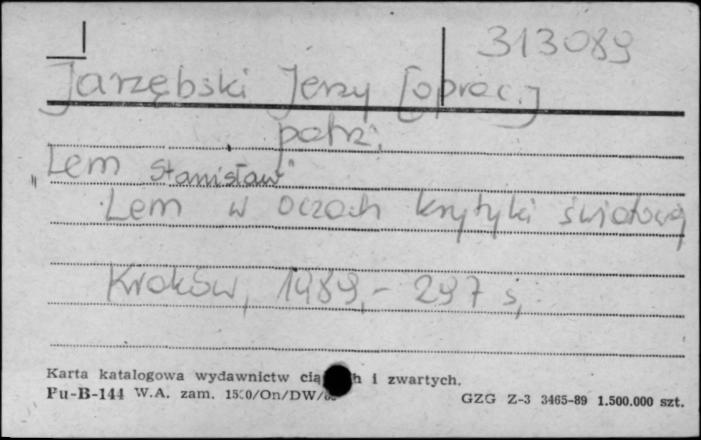 313089
Jarzębski Jerzy [oprac.]
patrz:
Lem Stanisław"
" Lem w oczach krytyki światowej
Kraków, 1989,- 297 s,
Karta katalogowa wydawnictw h i zwartych.
Pu-B-144 W.A. zam.
GZG Z-3 3465-89 1.500.000 szt.